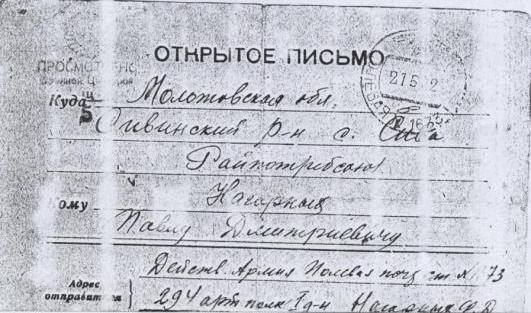 ОТКРЫТОЕ ПИСЬМО
ПРОСМОТРЕНО
Куда Молотовская обл.
Сивинский р-н с. Сива
Райпотребсоюз
Кому Нагорных
Павлу Дмитриевичу
Адрес отправителя Действ. Армия Полевая почт. ст. № 73
294 арт полк I д-н Нагорных Ф. Д